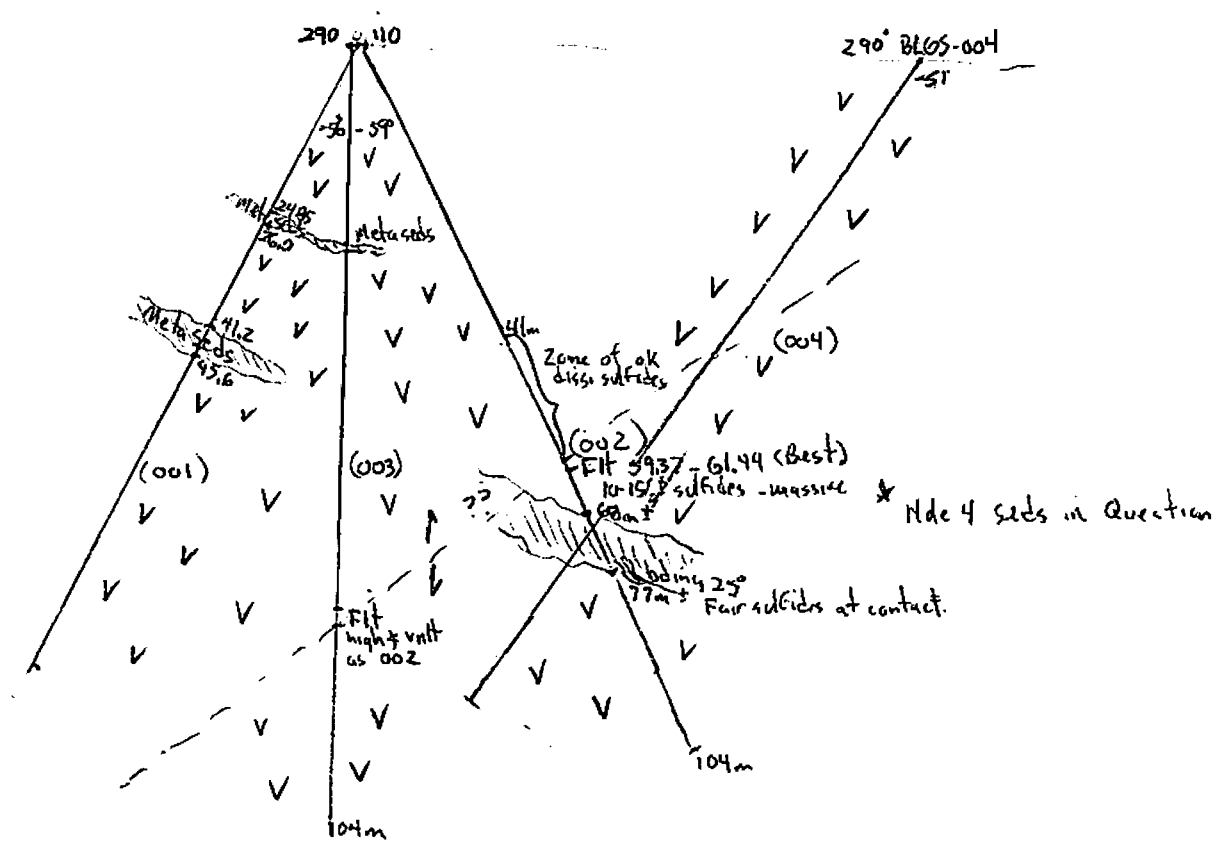 290 110
290° BLGS-004
-51
-59°
2485
Metaseds
Meta seds
41.2
45.6
41m
Zone of ok
diss. sulfides
(004)
(001)
(003)
(002)
Flt 59.37 - 61.44 (Best)
10-15% sulfides - massive
* Hole 4 seds in Question
??
25°
77m ±
Fair sulfides at contact.
Flt
as 002
104m
104m